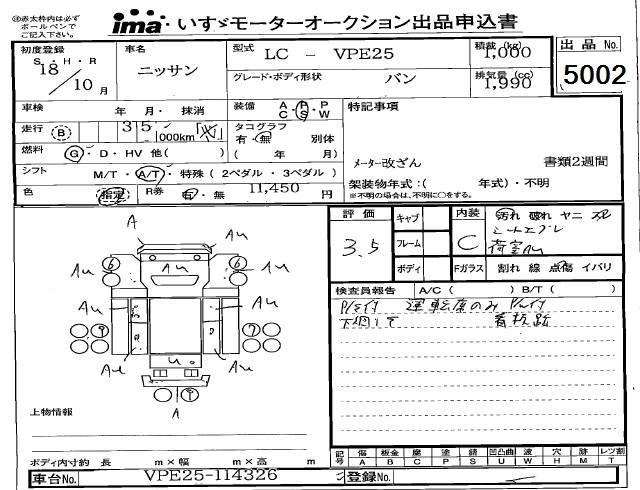 ※赤太枠内は必ず
ボールペンで
ご記入下さい。
ima いすゞモーターオークション出品申込書
初度登録
S・H・R
18
10月
車名
ニッサン
型式
LC - VPE25
グレード・ボディ形状
バン
積載(kg)
1,000
排気量(cc)
1,990
出品No.
5002
車検 年 月・ 抹消
走行 B 35 000km
燃料 G・D・HV 他( )
シフト M/T・A/T・特殊(2ペダル・3ペダル)
色 指定 R券 有・無 11,450円
装備 A P P
C S W
タコグラフ
有・無 別体
( 年 月)
特記事項
メーター改ざん 書類2週間
架装物年式:( 年式)・不明
※不明の場合は、不明に○をする。
評価
3.5
キャブ
フレーム
ボディ
内装
C
Fガラス
汚れ 破れ ヤニ
割れ 線 点傷 イバリ
検査員報告 A/C( ) B/T( )
運転席のみ
看板跡
A
Au
Au
Au
Au
Au
Au
Au
Au
A
上物情報
ボディ内寸約 長 m×幅 m×高 m
記号 傷 A 板金 B 腐 C 塗 P 錆 S 凹凸曲 U 波 W 穴 H 跡 M レツ割 T
車台No. VPE25-114326
登録No.